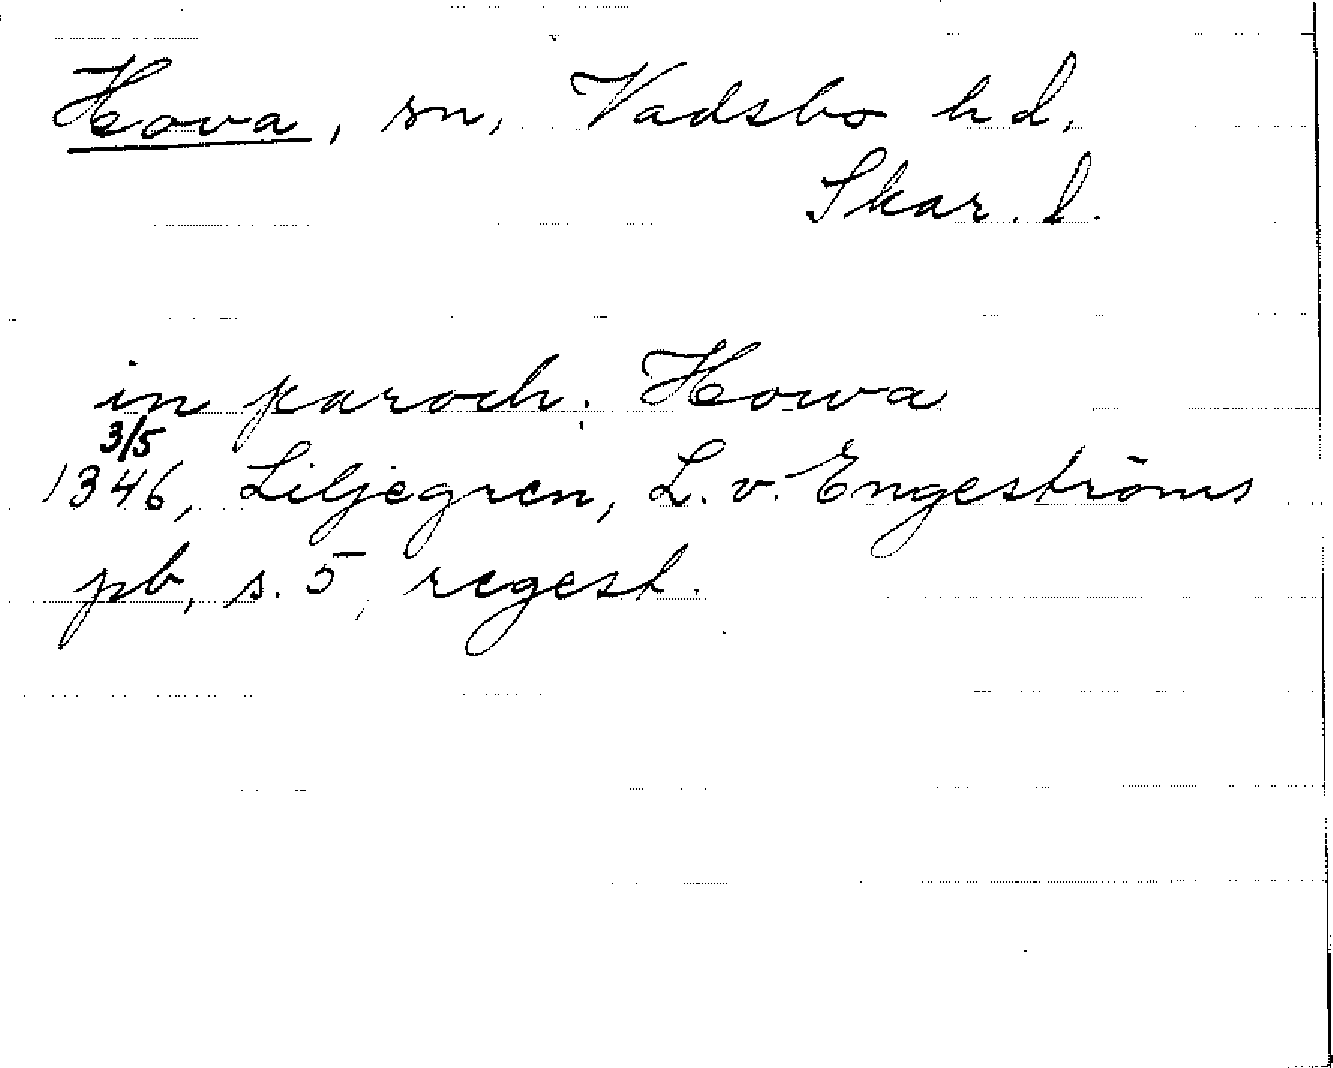 Hova, sn, Vadsbo hd,
Skar. l.
in paroch. Howa
3/5
1346, Liljegren, L. v. Engeströms
pb, s. 5, regest.